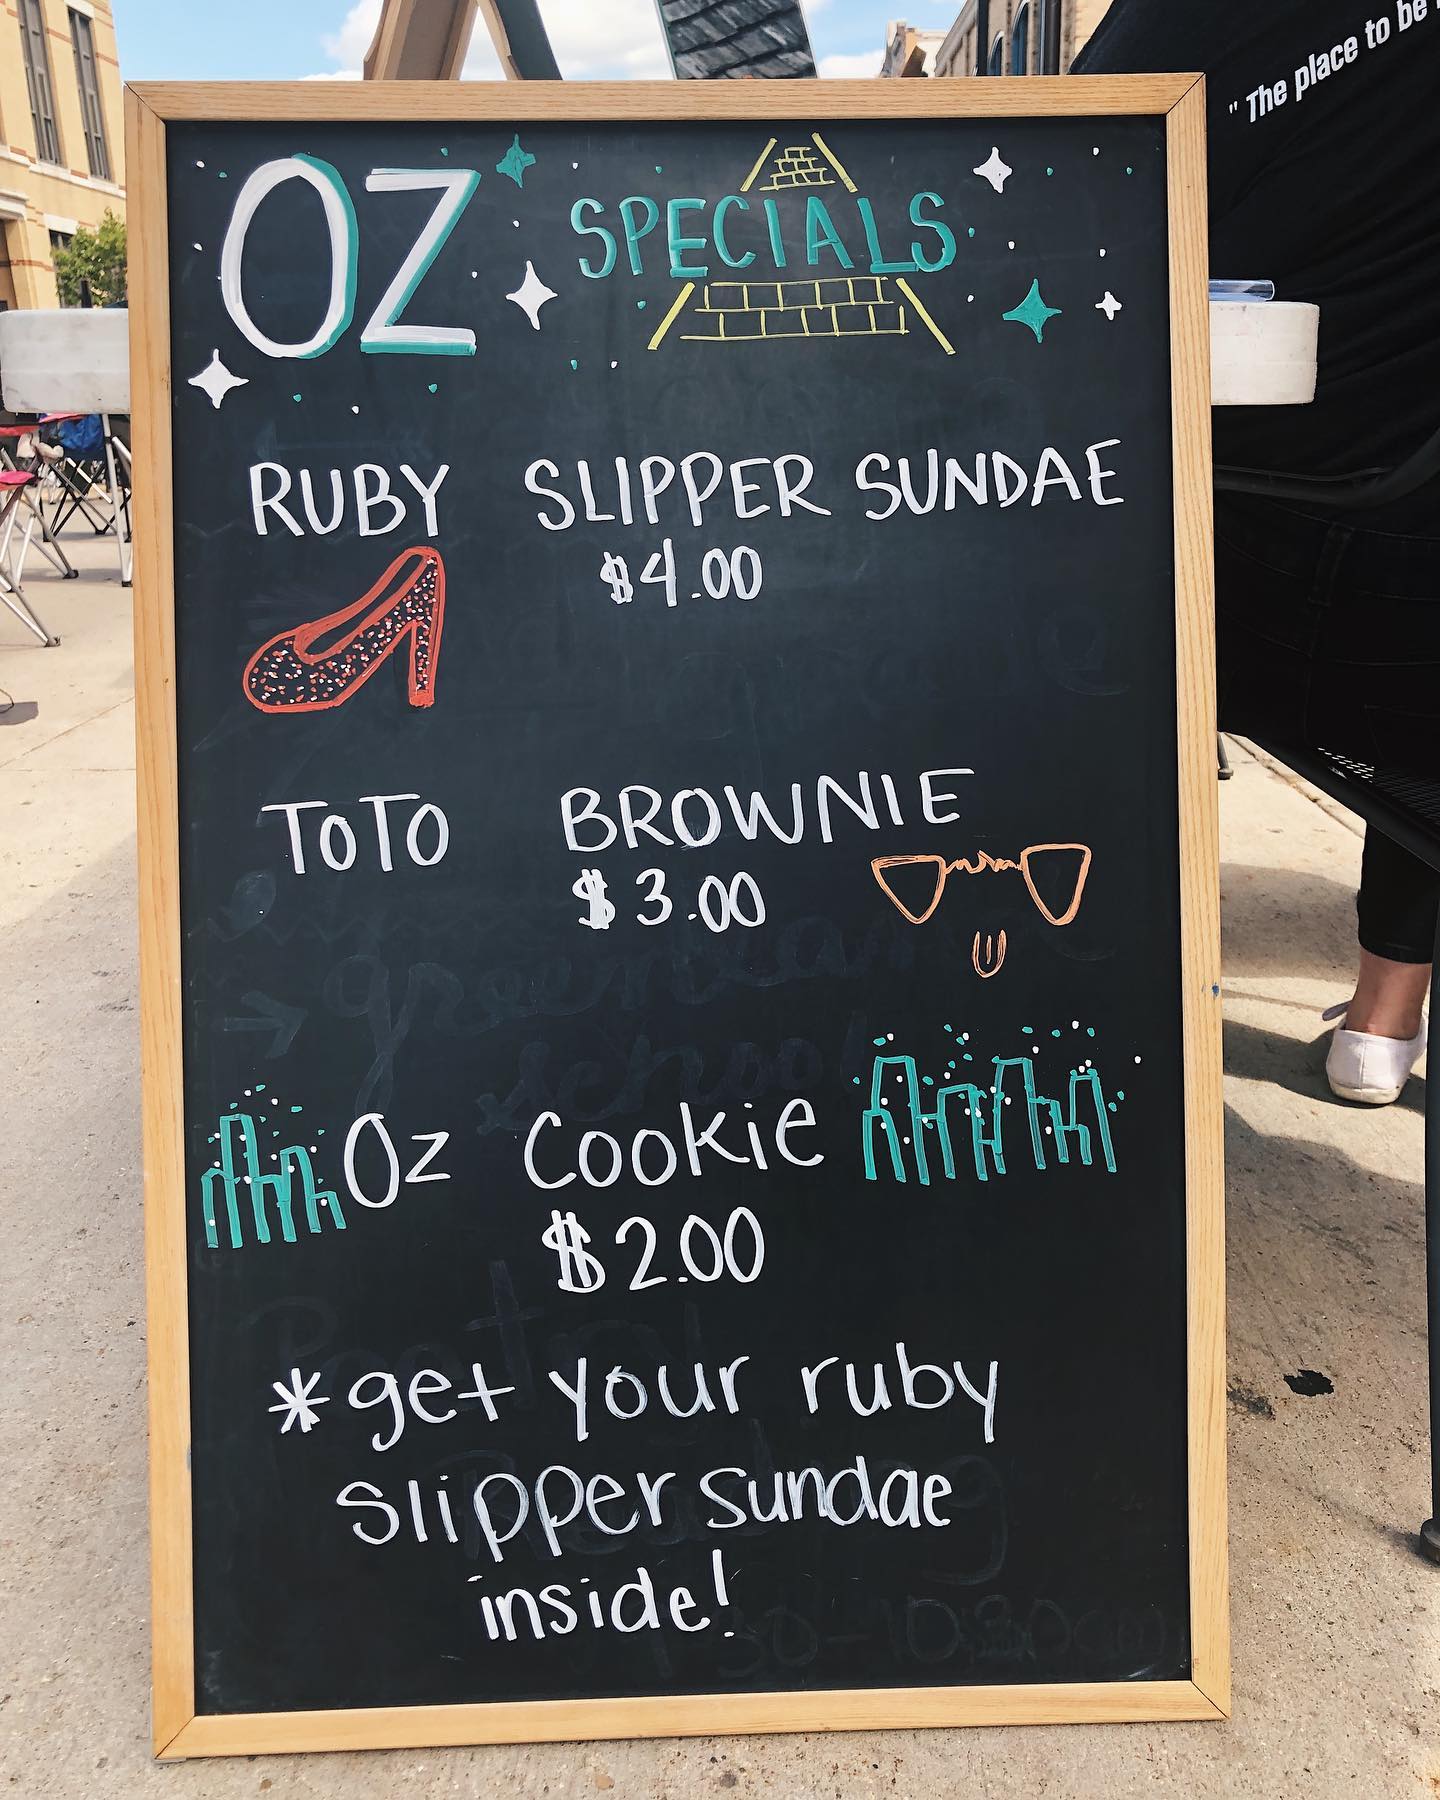 " The place to be
OZ SPECIALS
RUBY SLIPPER SUNDAE
$4.00
ToTo BROWNIE
$3.00
greenteam
school
Oz Cookie
$2.00
Poetry
*get your ruby
slipper sundae
Reading
inside!